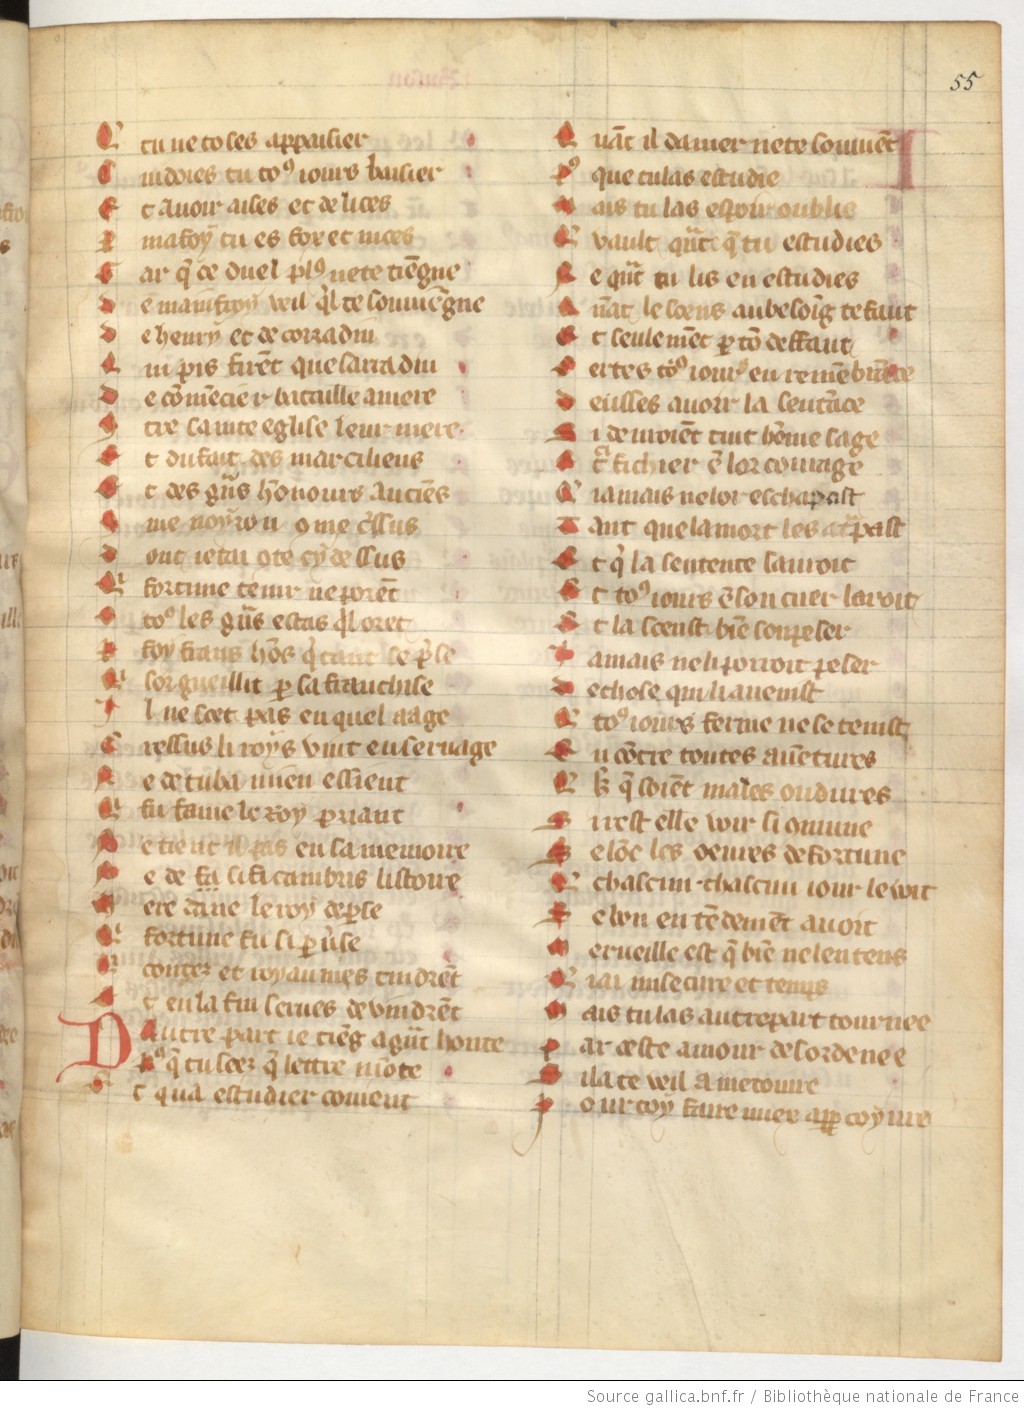 55
E tu ne toses appaisier
C uidoies tu to⁹ iours baisier
E t auoir aises et delices
P ma foy tu es fox et nices
C ar q̃ ce duel pl⁹ ne te tiẽgne
D e mainfroy veil q̃l te souuiẽgne
D e henry et de corradin
Q ui pis firẽt que sarradin
D e cõmẽcier bataille amere
C ᵒtre sainte eglise leur mere
E t du fait des marciliens
E t des gũs hõnours anciẽs
C ᵒme noyron ᵒme c̃ssus
D ont ie tai ᵒte cy dessus
Q fortune tenir ne porẽt
O to⁹ les gũs estas q̃l orẽt
P foy frans hõs q̃ tant se p̃se
Q sorgueillit p sa franchise
I l ne scet pas en quel aage
C ressus li roys vint en seruage
N e de cuba mien essient
Q fu fame le roy priant
N e tient il pas en sa memoire
N e de sisicambris listoire
M ere daire le roy de p̃se
Q fortune fu si puse
Q congez et royaumes tindrẽt
E t en la fin serues deuindrẽt
D Autre part ie tiẽg a gũt honte
P⁹ q̃ tu scez q̃ lettre mõte
E t qua estudier couient
Q uãt il damer ne te souuẽt
P⁹ que tu las estudie
M ais tu las espoir oublie
E vault q̃ut q̃ tu estudies
E e q̃ut tu lis en estudies
Q uãt le scens au besoĩg te faut
E t seulemẽt p tõ deffaut
C ertes to⁹ iours en remẽbrãce
D eusses auoir la sentãce
S i deuroiẽt tuit hõme sage
E t fichier ẽ lor courage
Q iamais ne lor eschapast
T ant que la mort les atrapast
E t q̃ la sentente sauroit
E t to⁹ iours ẽ son cuer lauroit
E t la sceust biẽ souspeser
I amais ne li porroit peser
D e chose qui li auenist
Q to⁹ iours ferme ne se tenist
E n cõtre toutes auẽtures
B q̃ soiẽt males ou dures
S i rest elle voir si ᵒmune
S elõc les oeures de fortune
Q chascun chascun iour le voit
S e bon entẽdemẽt auoit
M erueille est q̃ biẽ ne lentens
Q iai mise cure et temps
M ais tu las autrepart tournee
P ar ceste amour desordenee
S i la te veil amᵉtouure
P our toy faire miex appcoyure
Source gallica.bnf.fr / Bibliothèque nationale de France